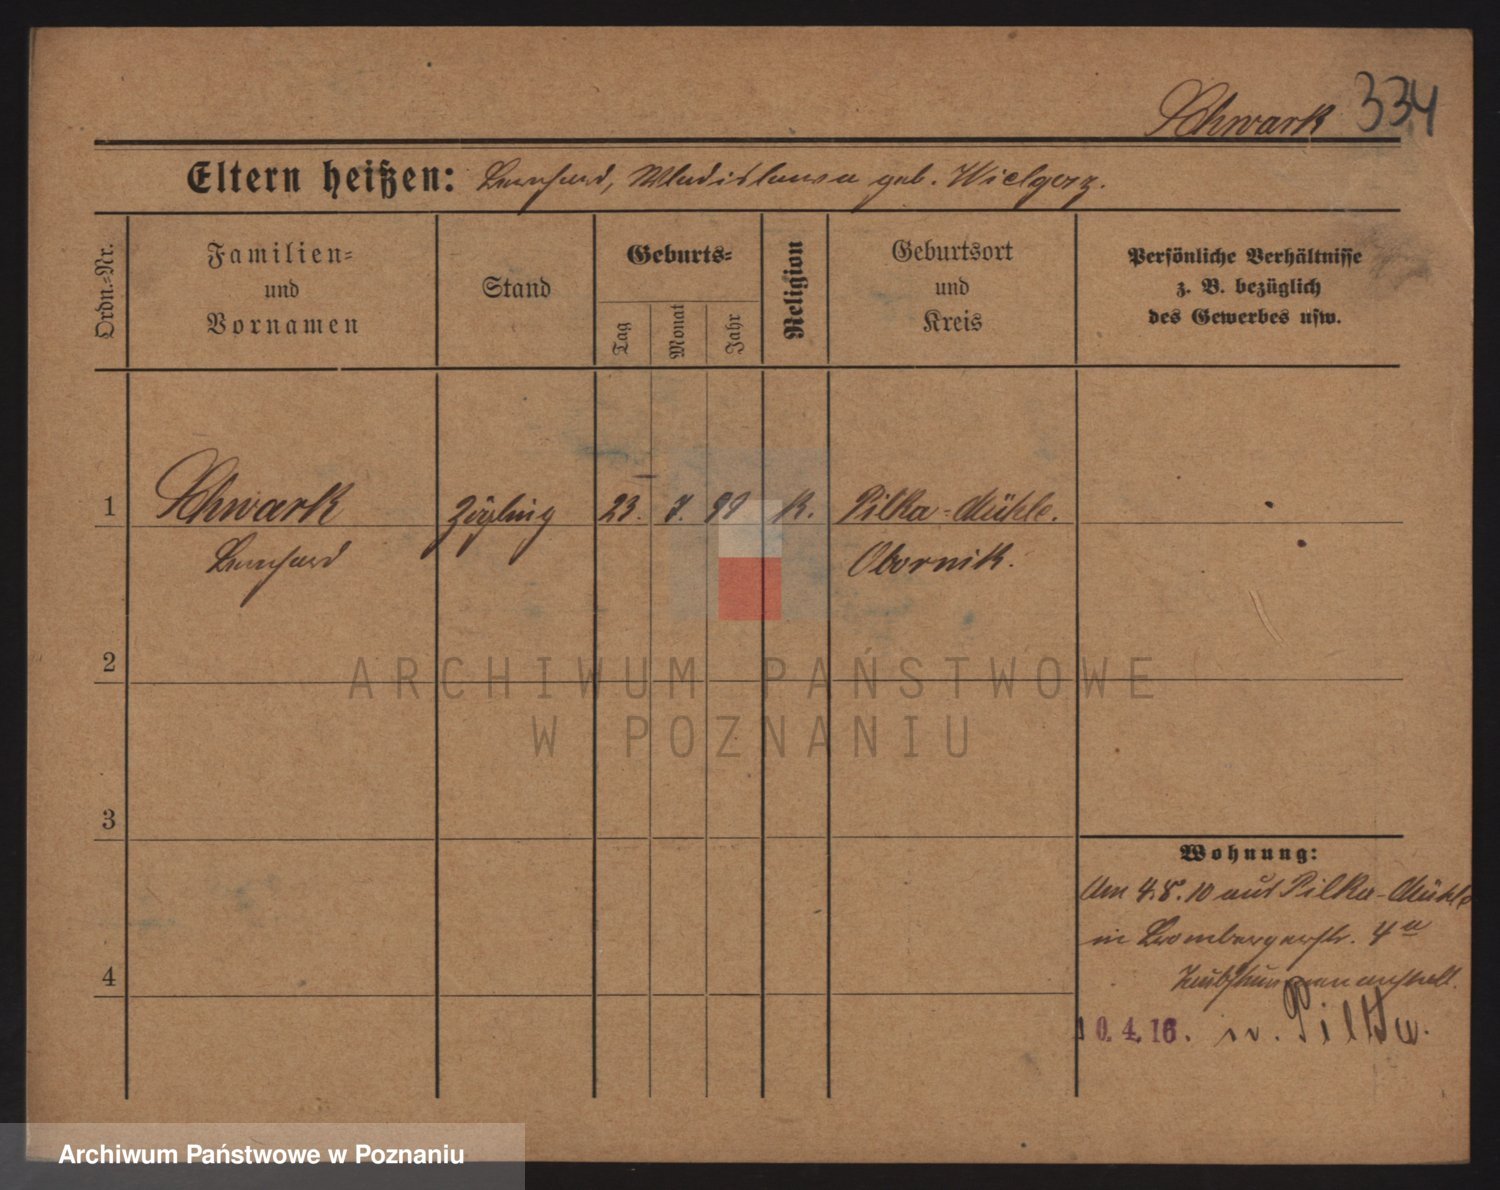 Schwark 334
Eltern heißen: Bernhard, Wladislawa geb. Wielgosz.
Ordn.-Nr.
Familien-
und
Vornamen
Stand
Geburts-
Tag
Monat
Jahr
Religion
Geburtsort
und
Kreis
Persönliche Verhältnisse
z. B. bezüglich
des Gewerbes usw.
1 Schwark Zögling 23. 7. 99 K. Pilka-Mühle.
Bernhard Obornik.
2
3
4
Wohnung:
Am 4.8.10 aus Pilka-Mühle
in Brombergerstr. 4a
Taubstummenanstalt.
10.4.16. n. Pilka.
ARCHIWUM PAŃSTWOWE
W POZNANIU
Archiwum Państwowe w Poznaniu